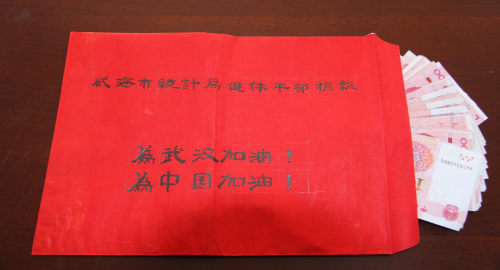 威海市统计局退休干部捐款
為武汉加油！
為中国加油！